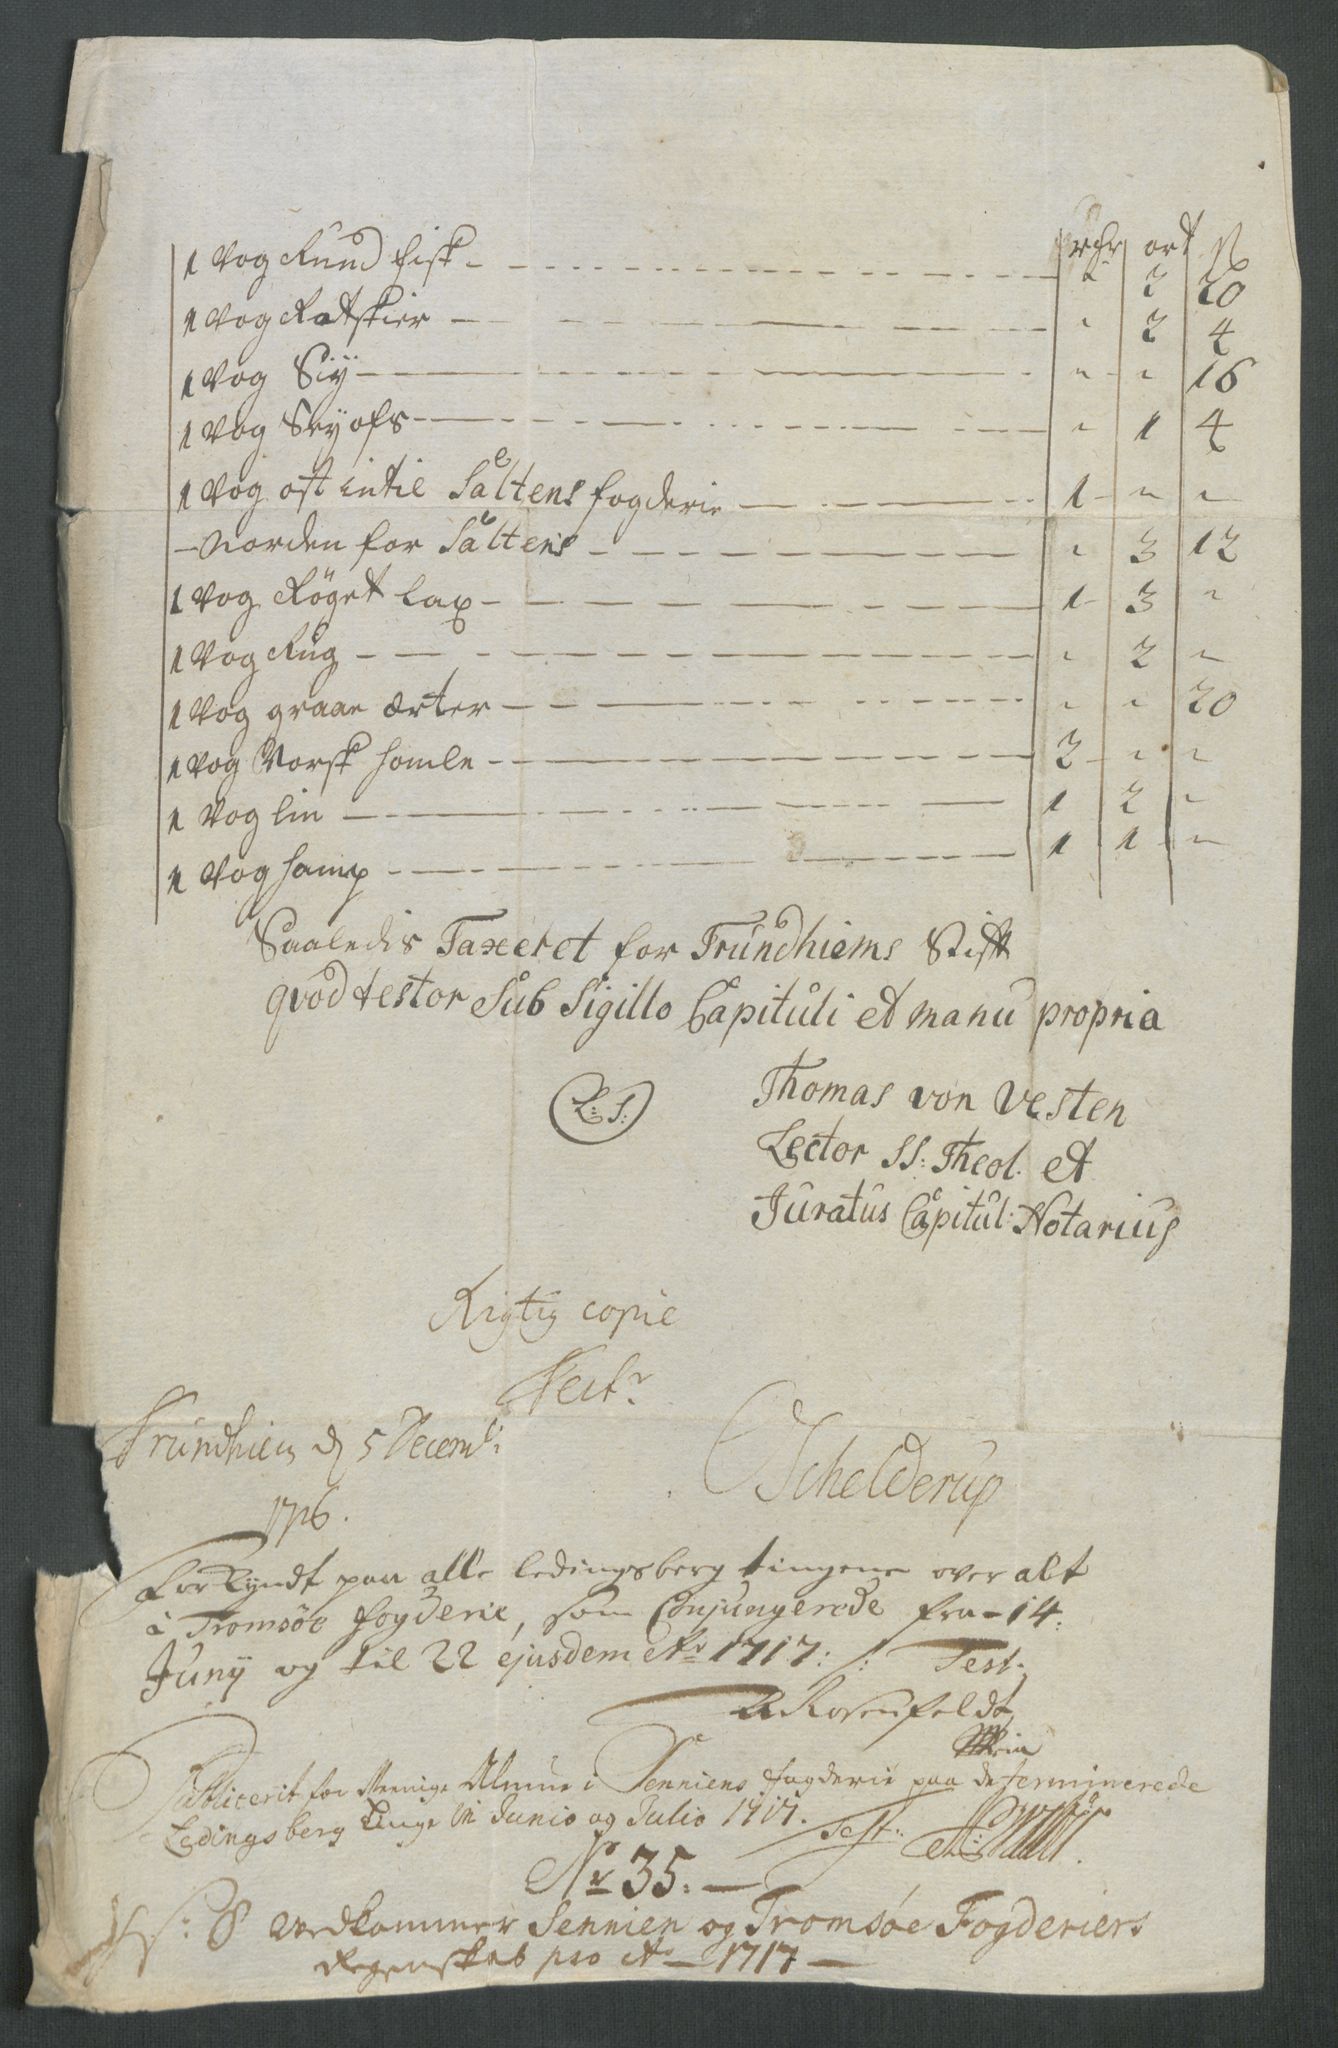 rdr ort ß
1 Vog Rund fisk - - - " 2 20
1 Vog Rotskier - - - " 2 4
1 Vog Sij - - - " " 16
1 Vog Seyofs - - - " 1 4
1 Vog ost intil Saltens fogderie - - - 1 " "
- Norden for Saltens - - - " 3 12
1 Vog Röget lax - - - 1 3 "
1 Vog Rug - - - " 2 "
1 Vog graae ærter - - - " " 20
1 Vog Norsk homle - - - 2 " "
1 Vog lin - - - 1 2 "
1 Vog hamp - - - 1 1 "
Saaledis Taxeret for Trundhiems Stift
qvod testor Sub Sigillo Capituli et manu propria
L: S:
Thomas von Vesten
Lector SS: Theol. et
Juratus Capitul: Notarius
Rigtig copie
Test
Trundhiem d 5 Decemb:
1716.
Schelderup
Forkyndt paa alle ledingsberg tingene over alt
i Tromsøe fogderie, som Conjungerede fra - 14:
Juny og til 22 ejusdem Ao 1717: /: Test:
Rosenfeldt
Publicerit for Menige Almue i Senniens fogderie paa de terminerede
Ledingsberg Tinge in Junio og Julio 1717. Test:
No 35: -
8 vedkommer Sennien og Tromsøe Fogderiers
Regenskab pro Ao - 1717 -